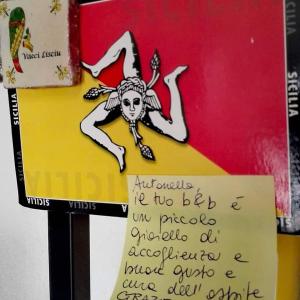 SICILIA
Vacci Lisciu
SICILIA
SICILIA
SICILIA
Antonella,
il tuo b&b è
un piccolo
gioiello di
accoglienza e
buon gusto e
cura dell'ospite
GRAZIE